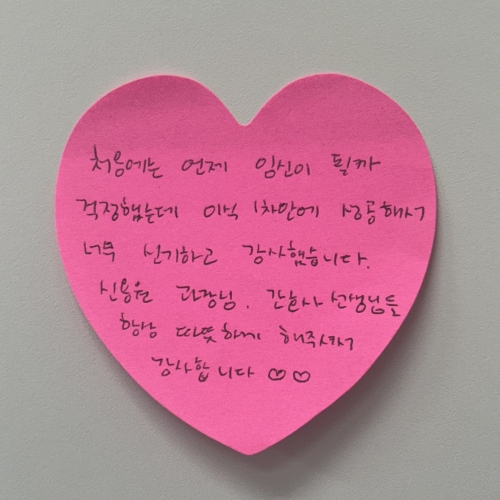 처음에는 언제 임신이 될까
걱정했는데 이식 1차만에 성공해서
너무 신기하고 감사했습니다.
신용원 과장님. 간호사 선생님들
항상 따뜻하게 해주셔서
감사합니다 ♡♡